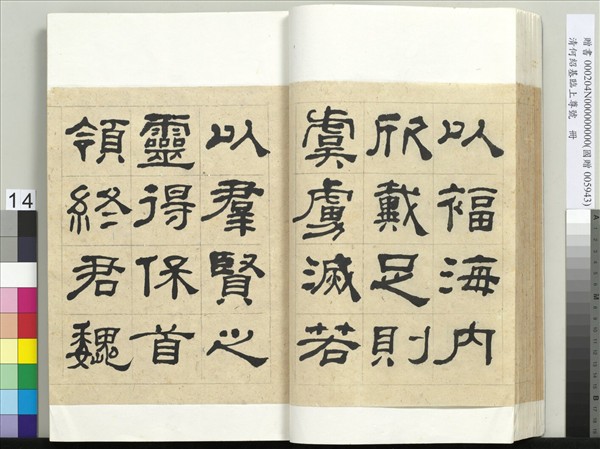 贈書 000204N000000000(國贈 005943)
清何紹基臨上尊號 冊
以福海内
欣戴足則
虞虜滅若
以羣賢之
靈得保首
領終君魏
14